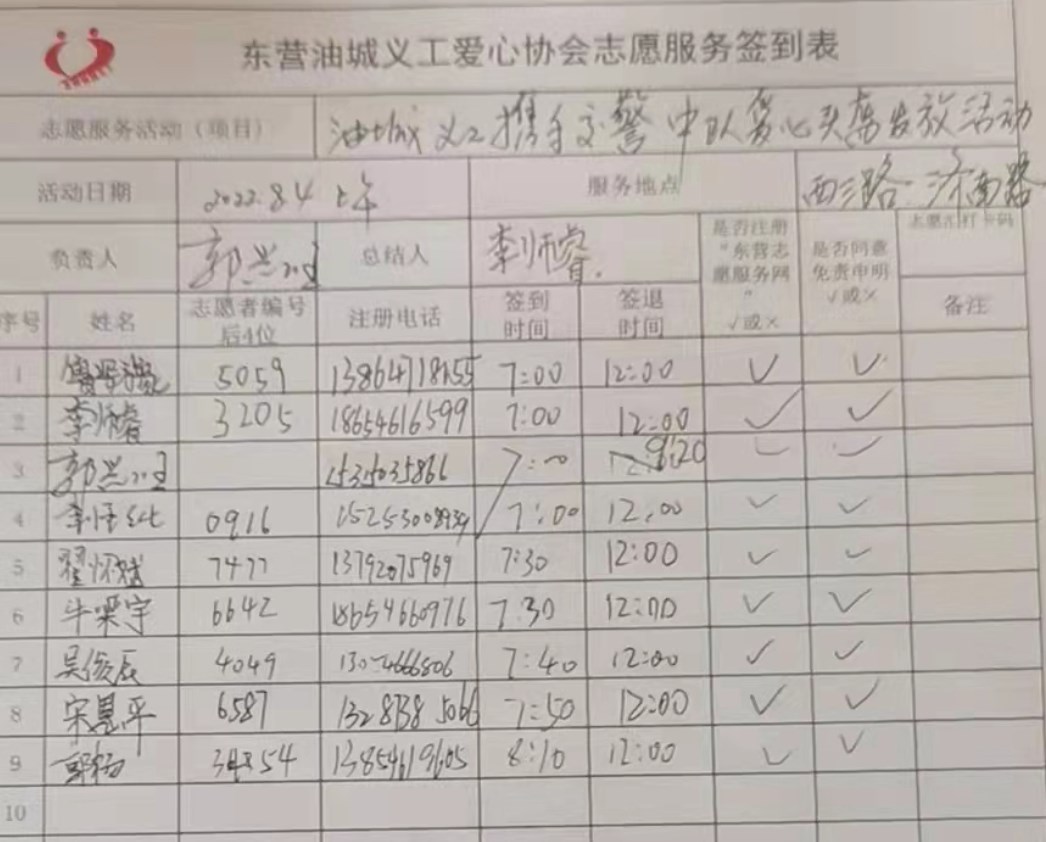 东营油城义工爱心协会志愿服务签到表
志愿服务活动（项目） 油城义工携手交警中队爱心头盔发放活动
活动日期 2022.8.4 上午 服务地点 西三路 济南路
负责人 郭兴 总结人 李师睿 是否注册“东营志愿服务网” √或× 是否同意免责申明 √或× 志愿汇打卡码
序号 姓名 志愿者编号后4位 注册电话 签到时间 签退时间 备注
1 5059 7:00 12:00 ✓ ✓
2 李师睿 3205 18654616599 7:00 12:00 ✓ ✓
3 郭兴 7:00 9:20 ✓ ✓
4 李 0916 7:00 12:00 ✓ ✓
5 翟怀斌 7477 13792075969 7:30 12:00 ✓ ✓
6 牛梁宇 6642 18654660976 7:30 12:00 ✓ ✓
7 吴俊辰 4049 7:40 12:00 ✓ ✓
8 宋昱平 6587 7:50 12:00 ✓ ✓
9 郭杨 13854619605 8:10 12:00 ✓ ✓
10